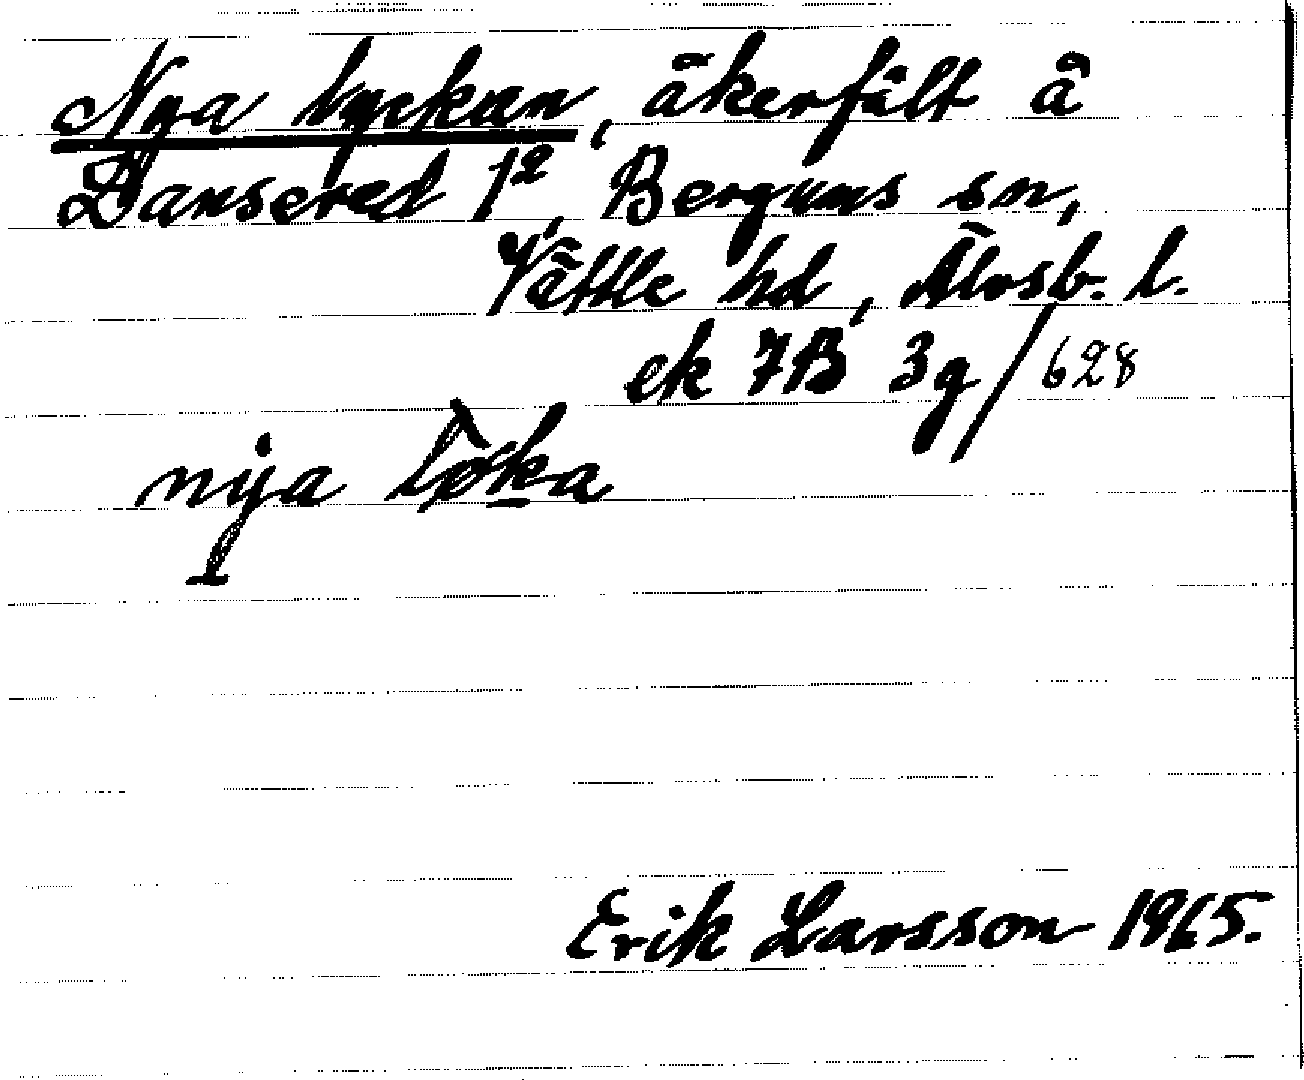 Nya lyckan, åkerfält å
Dansered 1², Bergums sn,
Vättle hd, Älvsb. l.
ek 7B 3g/628
nya
Erik Larsson 1965.